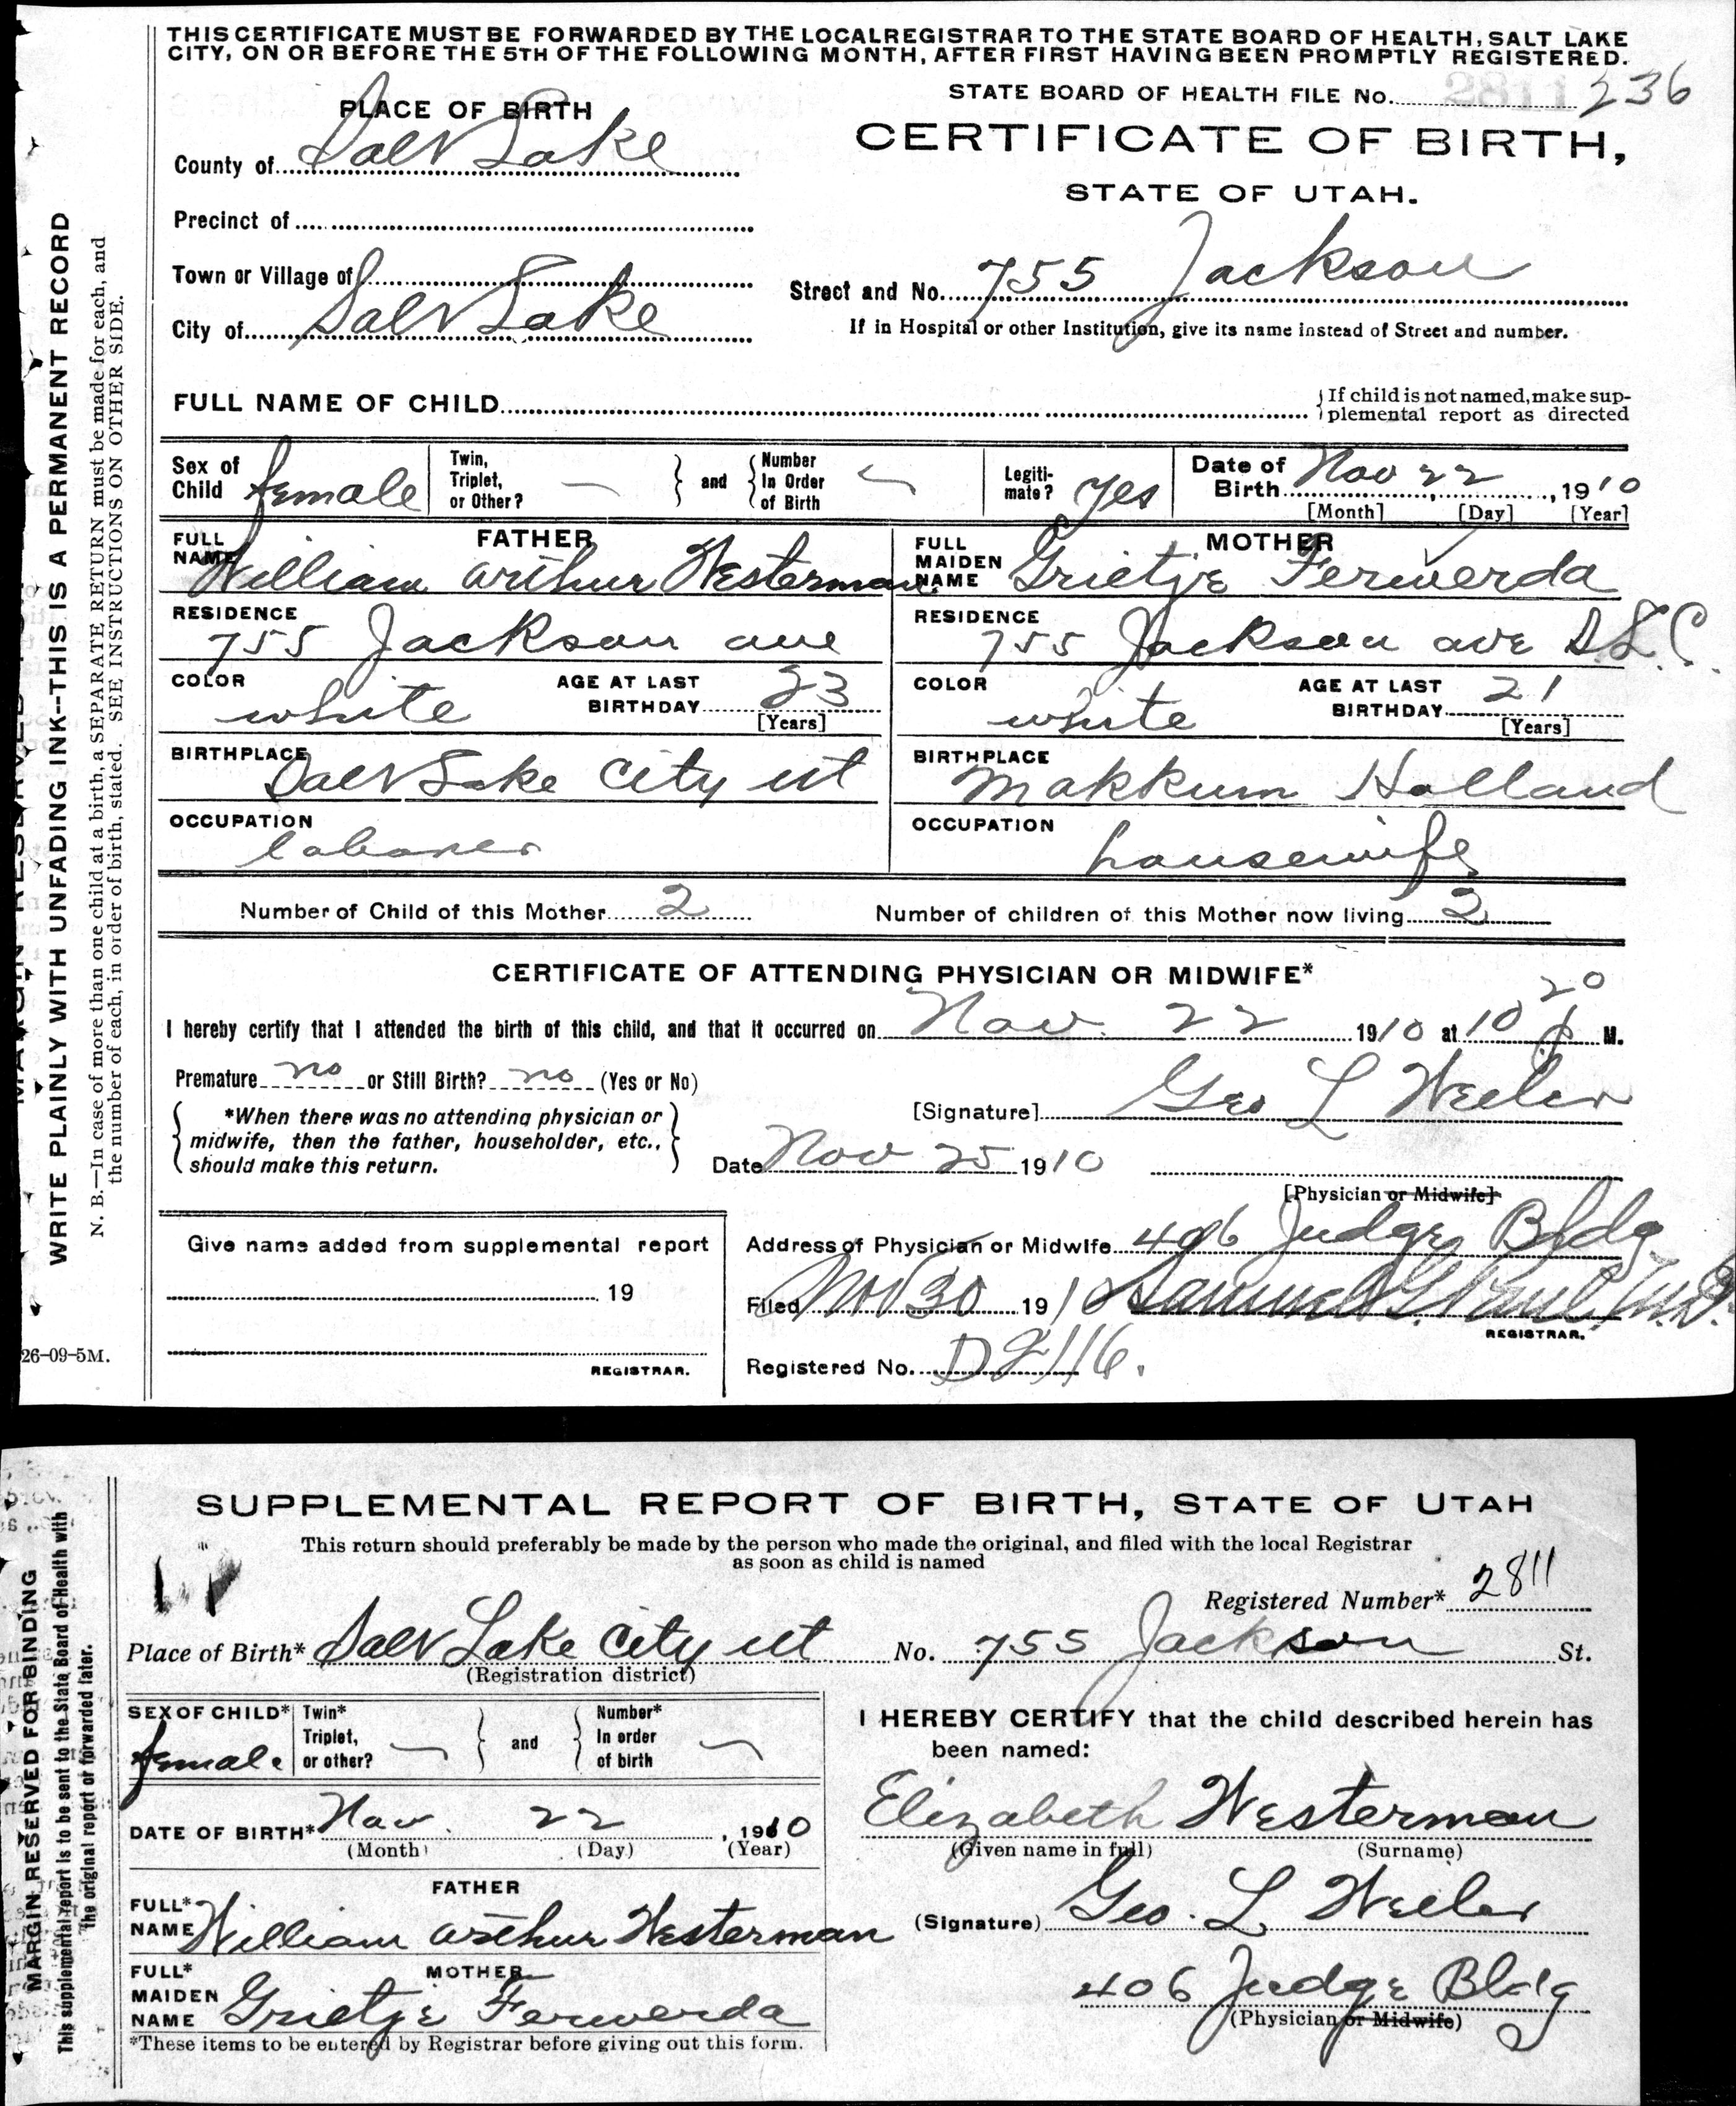 THIS CERTIFICATE MUST BE FORWARDED BY THE LOCAL REGISTRAR TO THE STATE BOARD OF HEALTH, SALT LAKE
CITY, ON OR BEFORE THE 5TH OF THE FOLLOWING MONTH, AFTER FIRST HAVING BEEN PROMPTLY REGISTERED.
STATE BOARD OF HEALTH FILE No. 236
PLACE OF BIRTH
CERTIFICATE OF BIRTH,
STATE OF UTAH.
County of Salt Lake
Precinct of
Town or Village of
Street and No. 755 Jackson
City of Salt Lake
If in Hospital or other Institution, give its name instead of Street and number.
FULL NAME OF CHILD
If child is not named, make sup-
plemental report as directed
Sex of Child female
Twin, Triplet, or Other? — and Number In Order of Birth —
Legiti-mate? yes
Date of Birth Nov 22, 1910
[Month] [Day] [Year]
FATHER
FULL NAME William Arthur Westerman
RESIDENCE 755 Jackson ave
COLOR white AGE AT LAST BIRTHDAY 23 [Years]
BIRTHPLACE Salt Lake City ut
OCCUPATION laborer
MOTHER
FULL MAIDEN NAME Grietje Ferwerda
RESIDENCE 755 Jackson ave S.L.C.
COLOR white AGE AT LAST BIRTHDAY 21 [Years]
BIRTHPLACE Makkum Holland
OCCUPATION housewife
Number of Child of this Mother 2 Number of children of this Mother now living 2
CERTIFICATE OF ATTENDING PHYSICIAN OR MIDWIFE*
I hereby certify that I attended the birth of this child, and that it occurred on Nov. 22 1910 at 10 20 P M.
Premature no or Still Birth? no (Yes or No)
*When there was no attending physician or
midwife, then the father, householder, etc.,
should make this return.
[Signature] Geo L Weiler
Date Nov 25 1910
[Physician or Midwife]
Give name added from supplemental report
19
REGISTRAR.
Address of Physician or Midwife 406 Judge Bldg
Filed Nov 30 1910 Samuel G. Paul, M.D.
REGISTRAR.
Registered No. D2116.
26-09-5M.
WRITE PLAINLY WITH UNFADING INK--THIS IS A PERMANENT RECORD
N. B.—In case of more than one child at a birth, a SEPARATE RETURN must be made for each, and
the number of each, in order of birth, stated. SEE INSTRUCTIONS ON OTHER SIDE.
SUPPLEMENTAL REPORT OF BIRTH, STATE OF UTAH
This return should preferably be made by the person who made the original, and filed with the local Registrar
as soon as child is named
Registered Number* 2811
Place of Birth* Salt Lake City ut No. 755 Jackson St.
(Registration district)
SEX OF CHILD* female
Twin* Triplet, or other? — and Number* In order of birth —
DATE OF BIRTH* Nov. 22, 1910
(Month) (Day) (Year)
FATHER
FULL* NAME William Arthur Westerman
MOTHER
FULL* MAIDEN NAME Grietje Ferwerda
*These items to be entered by Registrar before giving out this form.
I HEREBY CERTIFY that the child described herein has
been named:
Elizabeth Westerman
(Given name in full) (Surname)
(Signature) Geo. L Weiler
406 Judge Bldg
(Physician or Midwife)
MARGIN RESERVED FOR BINDING
This supplemental report is to be sent to the State Board of Health with
the original report or forwarded later.